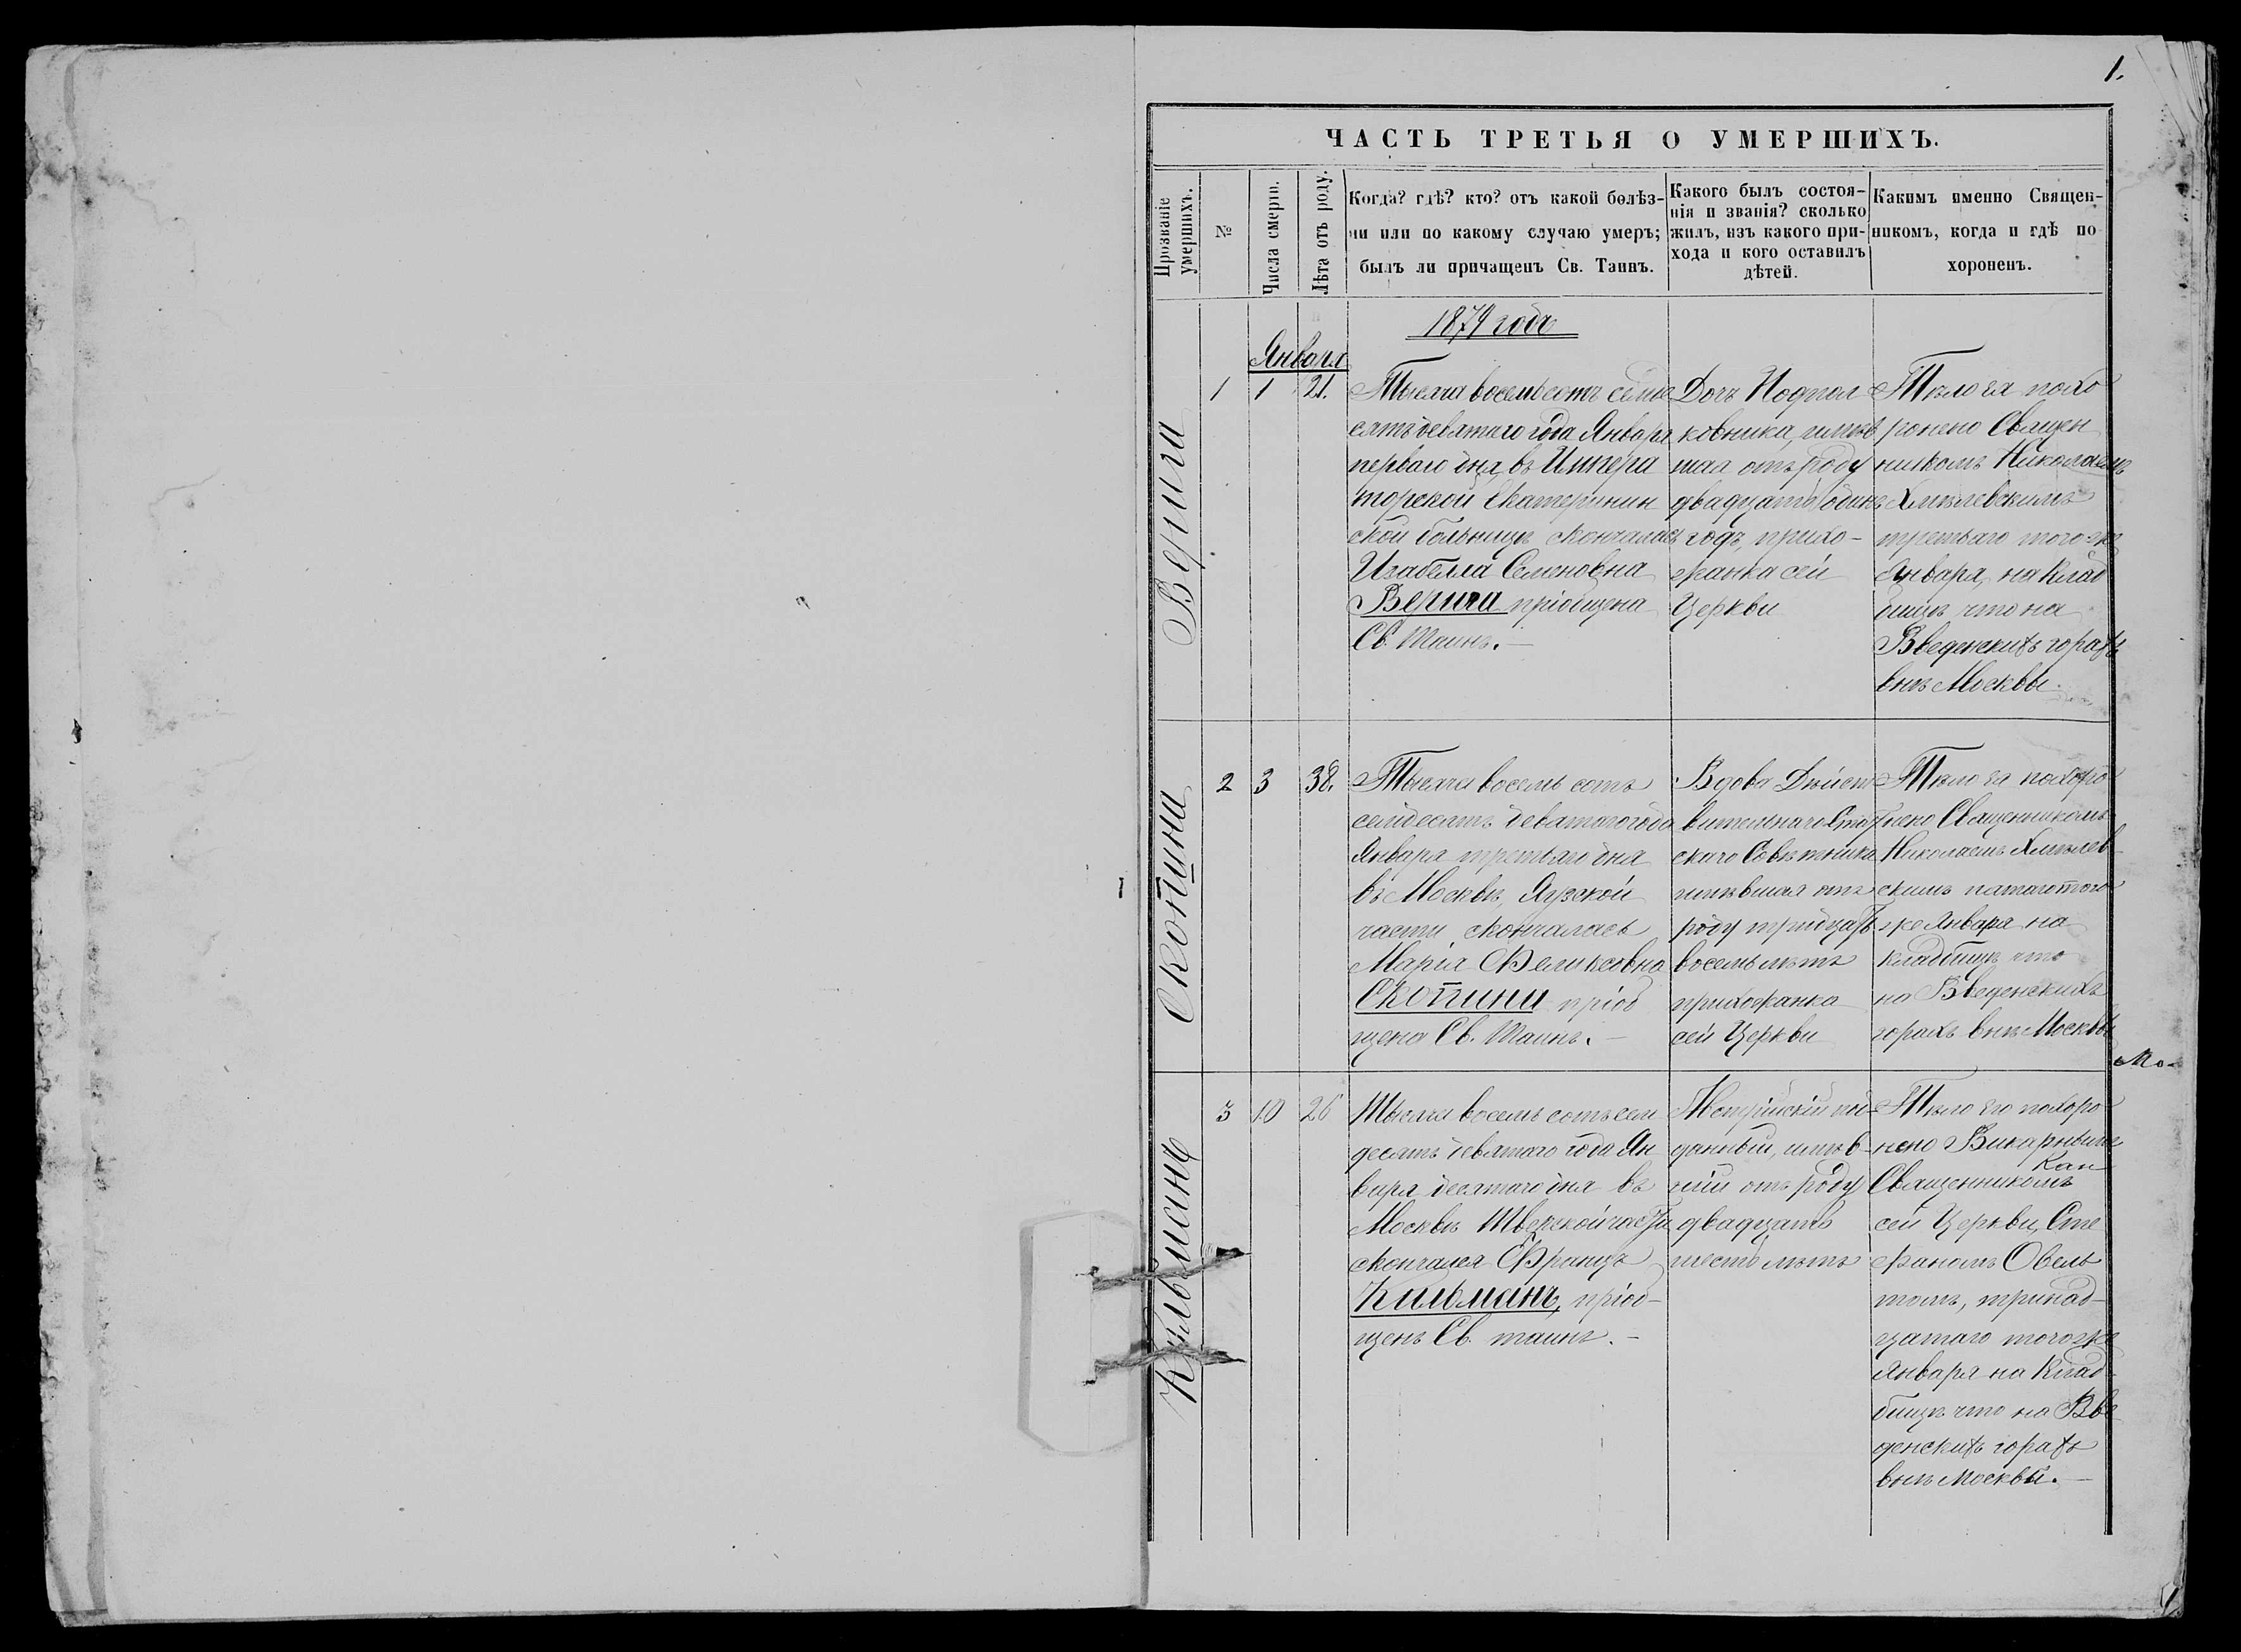 1.
ЧАСТЬ ТРЕТЬЯ О УМЕРШИХЪ.
Прозваніе
умершихъ.
№
Числа смерти.
Лѣта отъ роду.
Когда? гдѣ? кто? отъ какой болѣз-
ни или по какому случаю умеръ;
былъ ли причащенъ Св. Таинъ.
Какого былъ состоя-
нія и званія? сколько
жилъ, изъ какого при-
хода и кого оставилъ
дѣтей.
Какимъ именно Священ-
никомъ, когда и гдѣ по
хороненъ.
1879 годъ
Января
Верига
1
1
21.
Тысяча восемьсотъ семьде
сятъ девятаго года Января
перваго дня, въ Импера
торской Екатеринин
ской больницѣ скончалась
Изабелла Семеновна
Верига пріобщена
Св. Таинъ. —
Дочь Подпол
ковника, имѣв
шая отъ роду
двадцать одинъ
годъ, прихо-
жанка сей
Церкви
Тѣло ея похо
ронено Священ
никомъ Николаемъ
Хмѣлевскимъ
третьяго того же
Января, на клад
бищѣ что на
Введенскихъ горахъ
внѣ Москвы.
Скопина
2
3
38.
Тысяча восемь сотъ
семдесятъ девятаго года
Января третьяго дня
въ Москвѣ, Яузской
части скончалась
Марія Феликсовна
Скопина пріоб
щена Св. Таинъ. —
Вдова Дѣйст
вительнаго Стат
скаго Совѣтника
имѣвшая отъ
роду тридцать
восемь лѣтъ
прихожанка
сей Церкви
Тѣло ея похоро
нено Священникомъ
Николаемъ Хмѣлев
скимъ пятаго того
же Января на
кладбищѣ что
на Введенскихъ
горахъ внѣ Москвы
Мо-
Кильманъ
3
10
26
Тысяча восемь сотъ сем
десятъ девятаго года Ян
варя десятаго дня въ
Москвѣ Тверской части
скончался Францъ
Кильманъ, пріоб-
щенъ Св. таинъ. —
данный, имѣв-
шій отъ роду
двадцать
шесть лѣтъ
Тѣло его похоро
нено Викарнымъ
Кан
Священникомъ
сей Церкви, Сте
фаномъ Овель
томъ, тринад-
цатаго того же
Января на клад
бищѣ что на Вве
денскихъ горахъ
внѣ Москвы. —